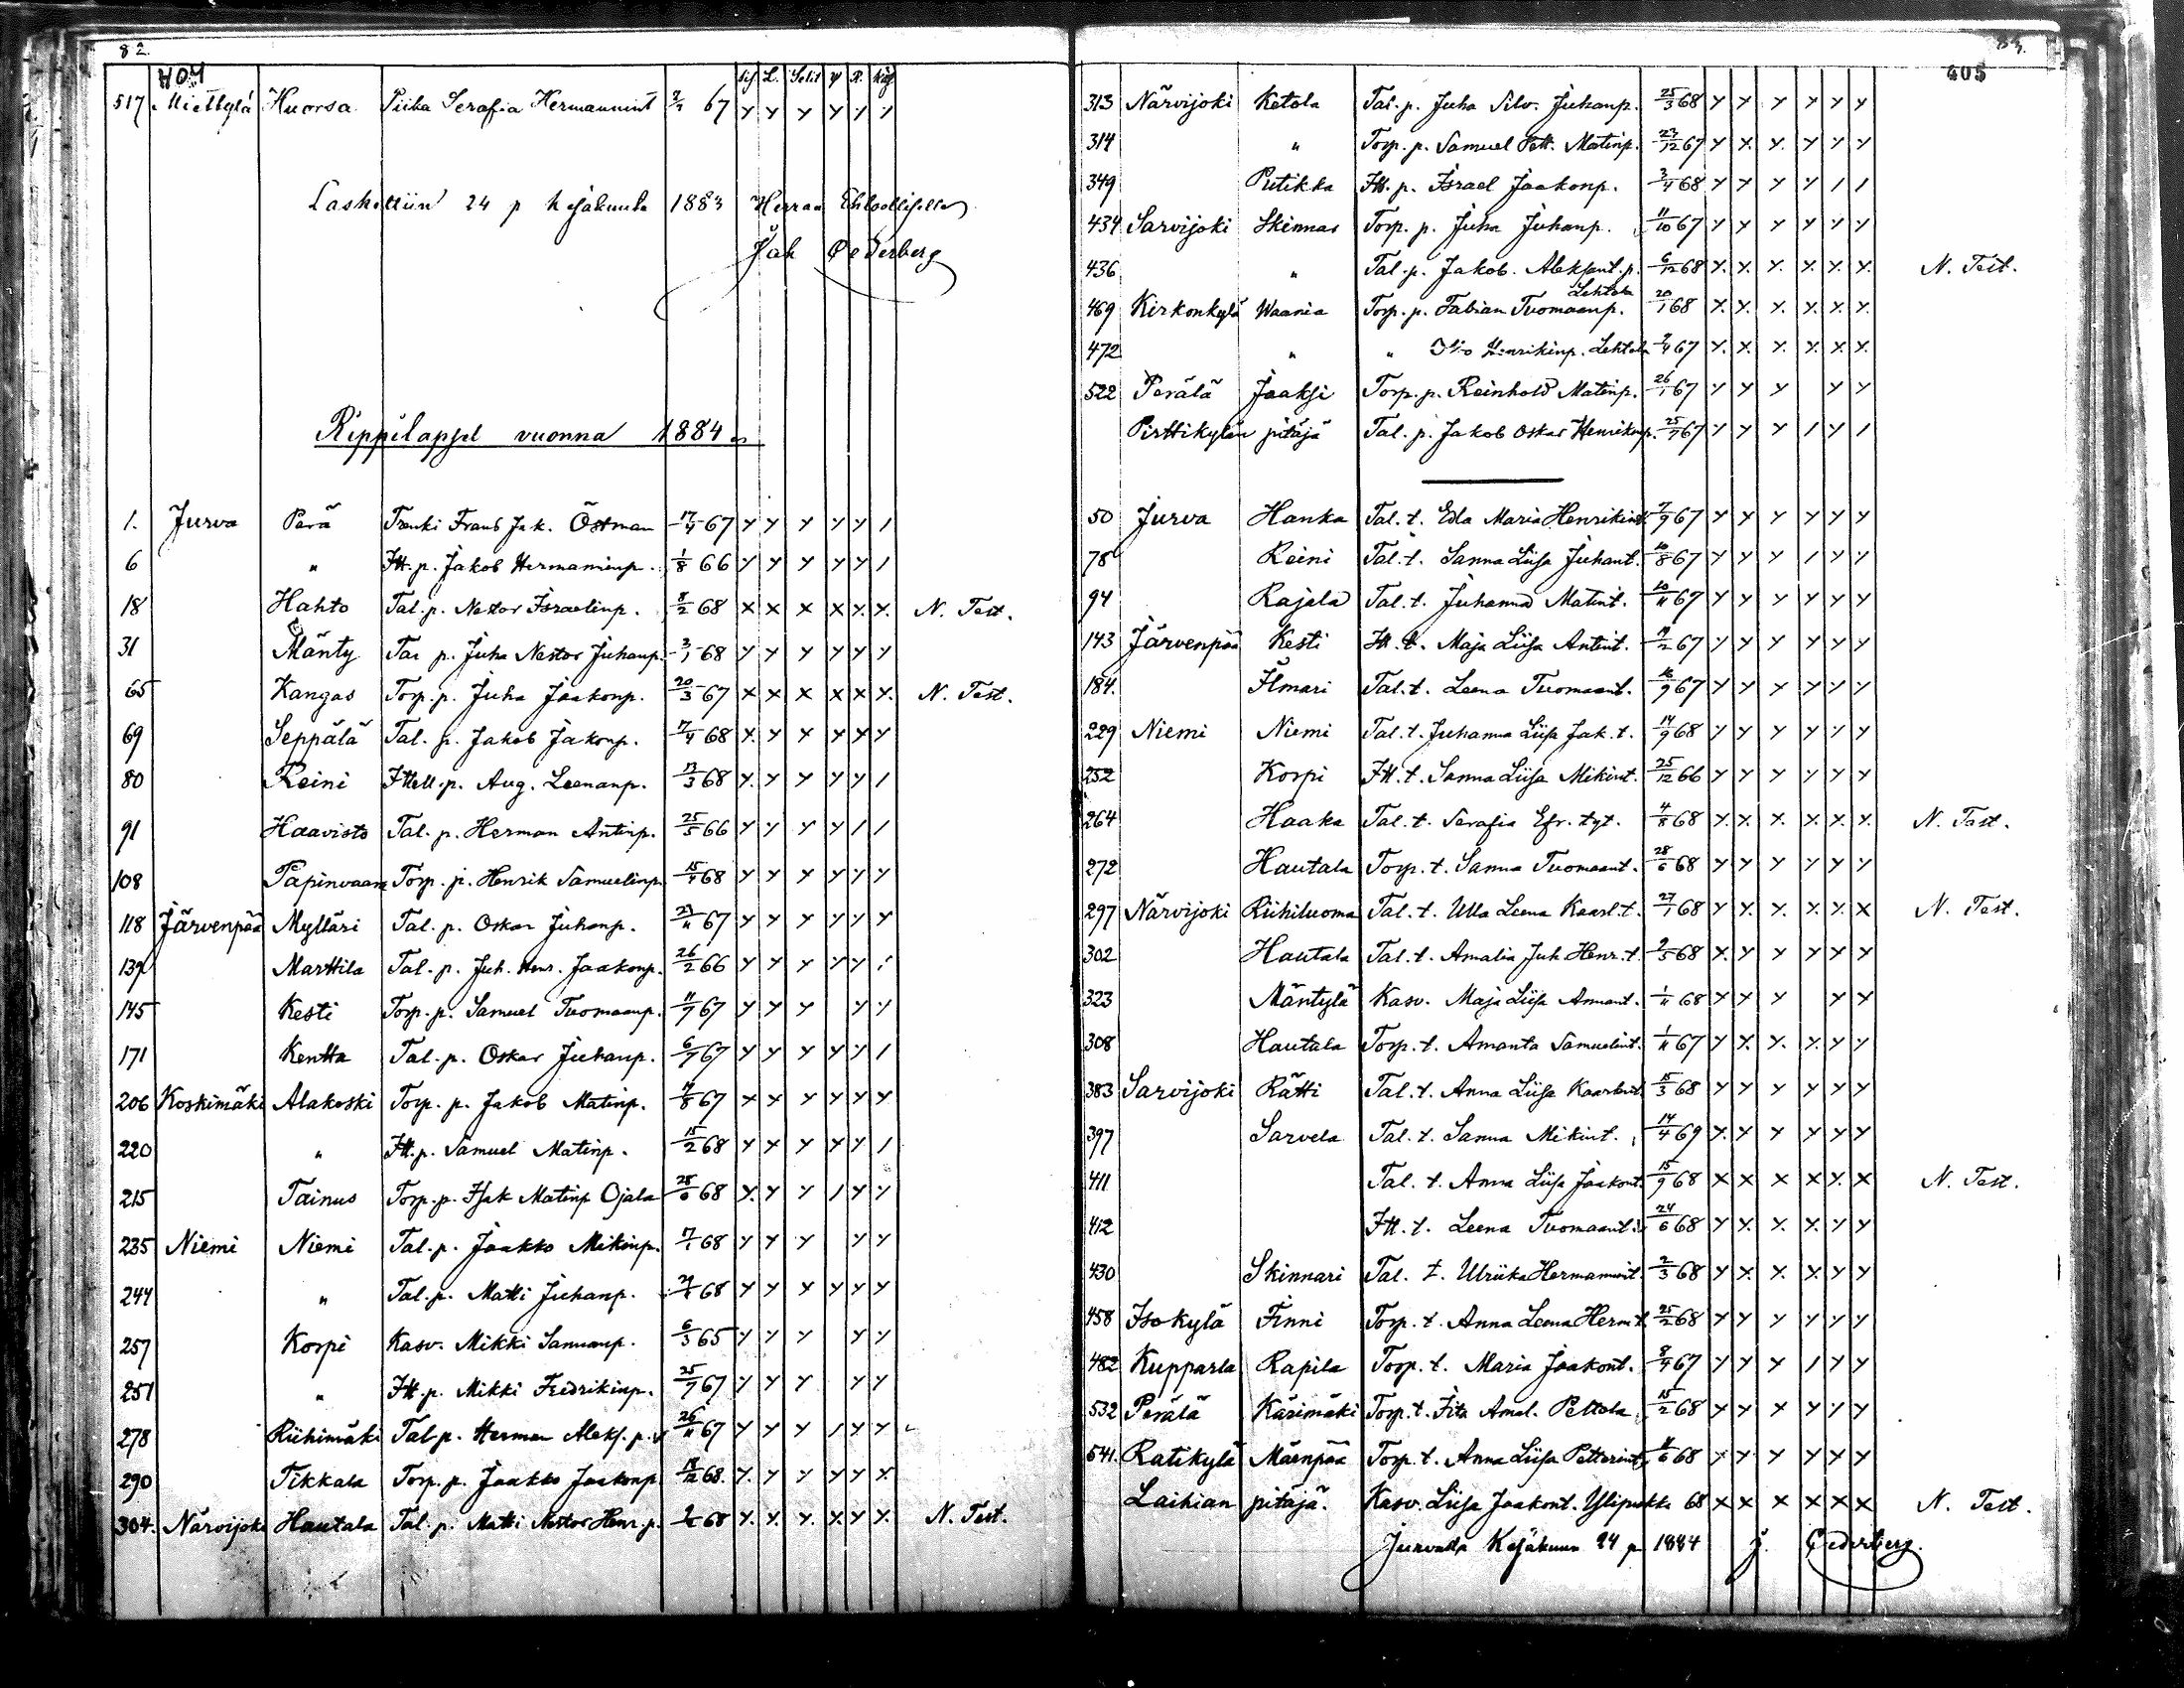 82.
404
Sis L. Selit Y R. Käy
517 Miettylä Huorsa Piika Serafia Hermannint 67 y y y y y /
Laskettiin 24 p kesäkuuta 1883 Herran Ehtoolliselle
Jak Cederberg
Rippilapset vuonna 1884.
1. Jurva Perä Trenki Frans Jak. Östman 17/4 67 y y y y y /
6 " Itt. p. Jakob Hermaninp. 1/8 66 y y y y y /
18 Hahto Tal. p. Nestor Israelinp. 8/2 68 x x x x x x. N. Test.
31 Mänty Tal p. Juha Nestor Juhanp. 3/1 68 y y y y y y
65 Kangas Torp. p. Juha Jaakonp. 20/3 67 x x x x x x. N. Test.
69 Seppälä Tal. p. Jakob Jakonp. 7/4 68 x. y y y y y
80 Reini Itell. p. Aug. Leenanp. 13/3 68 y. y y y y /
91 Haavisto Tal. p. Herman Antinp. 25/5 66 y y y y / /
108 Papinvaara Torp. p. Henrik Samuelinp. 15/4 68 y y y y y y
118 Järvenpää Mylläri Tal. p. Oskar Juhanp. 23/11 67 y y y y y y
139 Marttila Tal. p. Juh. Henr. Jaakonp. 26/2 66 y y y y y /
145 Kesti Torp. p. Samuel Tuomaanp. 11/7 67 y y y y y
171 Kentta Tal. p. Oskar Juhanp. 6/7 67 y y y y y /
206 Koskimäki Alakoski Torp. p. Jakob Matinp. 7/8 67 y y y y y y
220 " Itt. p. Samuel Matinp. 15/2 68 y y y y y /
215 Tainus Torp. p. Isak Matinp Ojala 28/6 68 y. y y / y y
235 Niemi Niemi Tal. p. Jaakko Mikinp. 7/1 68 y y y y y
244 " Tal. p. Matti Juhanp. 68 y y y y y y
257 Korpi Kasv. Mikki Sannanp. 6/3 65 y y y y y
251 " Itt. p. Mikki Fredrikinp. 25/7 67 y y y y y
278 Riihimäki Tal. p. Herman Aleks. p. 26/11 67 y y y / y y
290 Tikkala Torp. p. Jaakko Jaakonp 18/12 68. y. y y y y y.
304. Närvijoki Hautala Tal. p. Matti Nestor Henr. p. 68 y. y. y. x y y. N. Test.
83.
405
313 Närvijoki Ketola Tal. p. Juha Silv. Juhanp. 25/3 68 y y y y y y
314 " Torp. p. Samuel Pett. Matinp. 23/12 67 y x. y. y y y
349 Putikka Itt. p. Israel Jaakonp. 3/4 68 y y y y / /
434 Sarvijoki Skinnar Torp. p. Juha Juhanp. 11/10 67 y y y y y y
436 " Tal. p. Jakob. Aleksant. p. 6/12 68 y. y. y. y. y. y. N. Test.
469 Kirkonkylä Waania Torp. p. Fabian Tuomaanp. Lehtola 20/1 68 y. y. y. y. y. y.
472 " " Henrikinp. Lehtola 67 y. x. y. y. x. x.
522 Perälä Jaaksi Torp. p. Reinhold Matinp. 26/1 67 y y y y y
Pirttikylän pitäjä Tal. p. Jakob Oskar Henrikinp. 25/7 67 y y y / y /
50 Jurva Hanka Tal. t. Edla Maria Henrikint. 7/9 67 y y y y y y
78 Reini Tal. t. Sanna Liisa Juhant. 10/8 67 y y y / y y
94 Rajala Tal. t. Juhanna Matint. 10/11 67 y y y y y y
143 Järvenpää Kesti Itt. t. Maja Liisa Antint. 67 y y y y y y
184. Ilmari Tal. t. Leena Tuomaant. 16/9 67 y y y y y y
229 Niemi Niemi Tal. t. Juhanna Liisa Jak. t. 14/9 68 y y y y y y
252 Korpi Itt. t. Sanna Liisa Mikint. 25/12 66 y y y y y y
264 Haaka Tal. t. Serafia Efr. tyt. 4/8 68 y. x. x. x. x. x. N. Test.
272 Hautala Torp. t. Sanna Tuomaant. 28/6 68 y y y y y y
297 Närvijoki Riihiluoma Tal. t. Ulla Leena Kaarl. t. 27/1 68 y y. y. y. y. x N. Test.
302 Hautala Tal. t. Amalia Juh Henr. t. 2/5 68 x. y y y y y
323 Mäntylä Kasv. Maja Liisa Annant. 1/11 68 y y y y y
308 Hautala Torp. t. Amanta Samuelint. 1/11 67 y x. y. y. y y
383 Sarvijoki Rätti Tal. t. Anna Liisa Kaarlent. 15/3 68 y y y y y y
397 Sarvela Tal. t. Sanna Mikint. 14/4 69 y. y y y y y
411 Tal. t. Anna Liisa Jaakont. 15/9 68 x x x x x. x N. Test.
412 Itt. t. Leena Tuomaant. 24/6 68 y y. y. x y y
430 Skinnari Tal. t. Ulriika Hermannint. 2/3 68 y x. x. x. y y
458 Isokylä Finni Torp. t. Anna Leena Herm t. 25/2 68 y y y y y y
482 Kupparla Rapila Torp. t. Maria Jaakont. 8/4 67 y y y / y y
532 Perälä Kärimäki Torp. t. Iita Amal. Pettola 15/2 68 y y x y y y
541. Ratikylä Mäenpää Torp. t. Anna Liisa Petterint. 68 y y y y y y
Laihian pitäjä. Kasv. Liisa Jaakont. 68 x x x x x x N. Test.
Jurvalla Kesäkuun 24 p 1884 J. Cederberg.